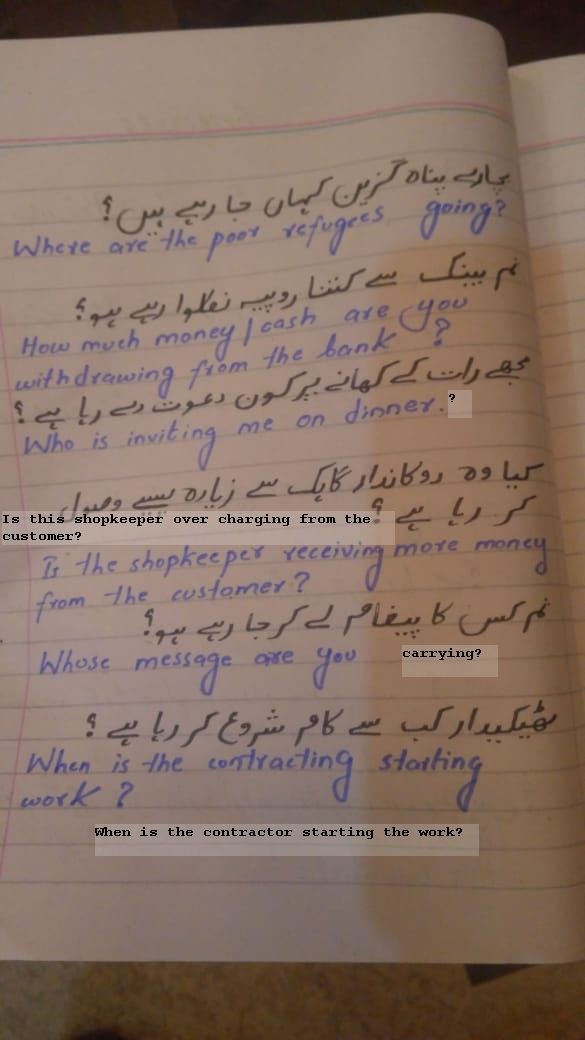 بچارے پناہ گزین کہاں جا رہے ہیں؟
Where are the poor refugees going?
تم بینک سے کتنا روپیہ نکلوا رہے ہو؟
How much money/cash are you
withdrawing from the bank ?
مجھے رات کے کھانے پر کون دعوت دے رہا ہے؟
Who is inviting me on dinner. ?
کیا وہ دوکاندار گاہک سے زیادہ پیسے وصول
کر رہا ہے؟
Is this shopkeeper over charging from the
customer?
Is the shopkeeper receiving more money
from the customer?
تم کس کا پیغام لے کر جا رہے ہو؟
Whose message are you carrying?
ٹھیکیدار کب سے کام شروع کر رہا ہے؟
When is the contracting starting
work ?
When is the contractor starting the work?